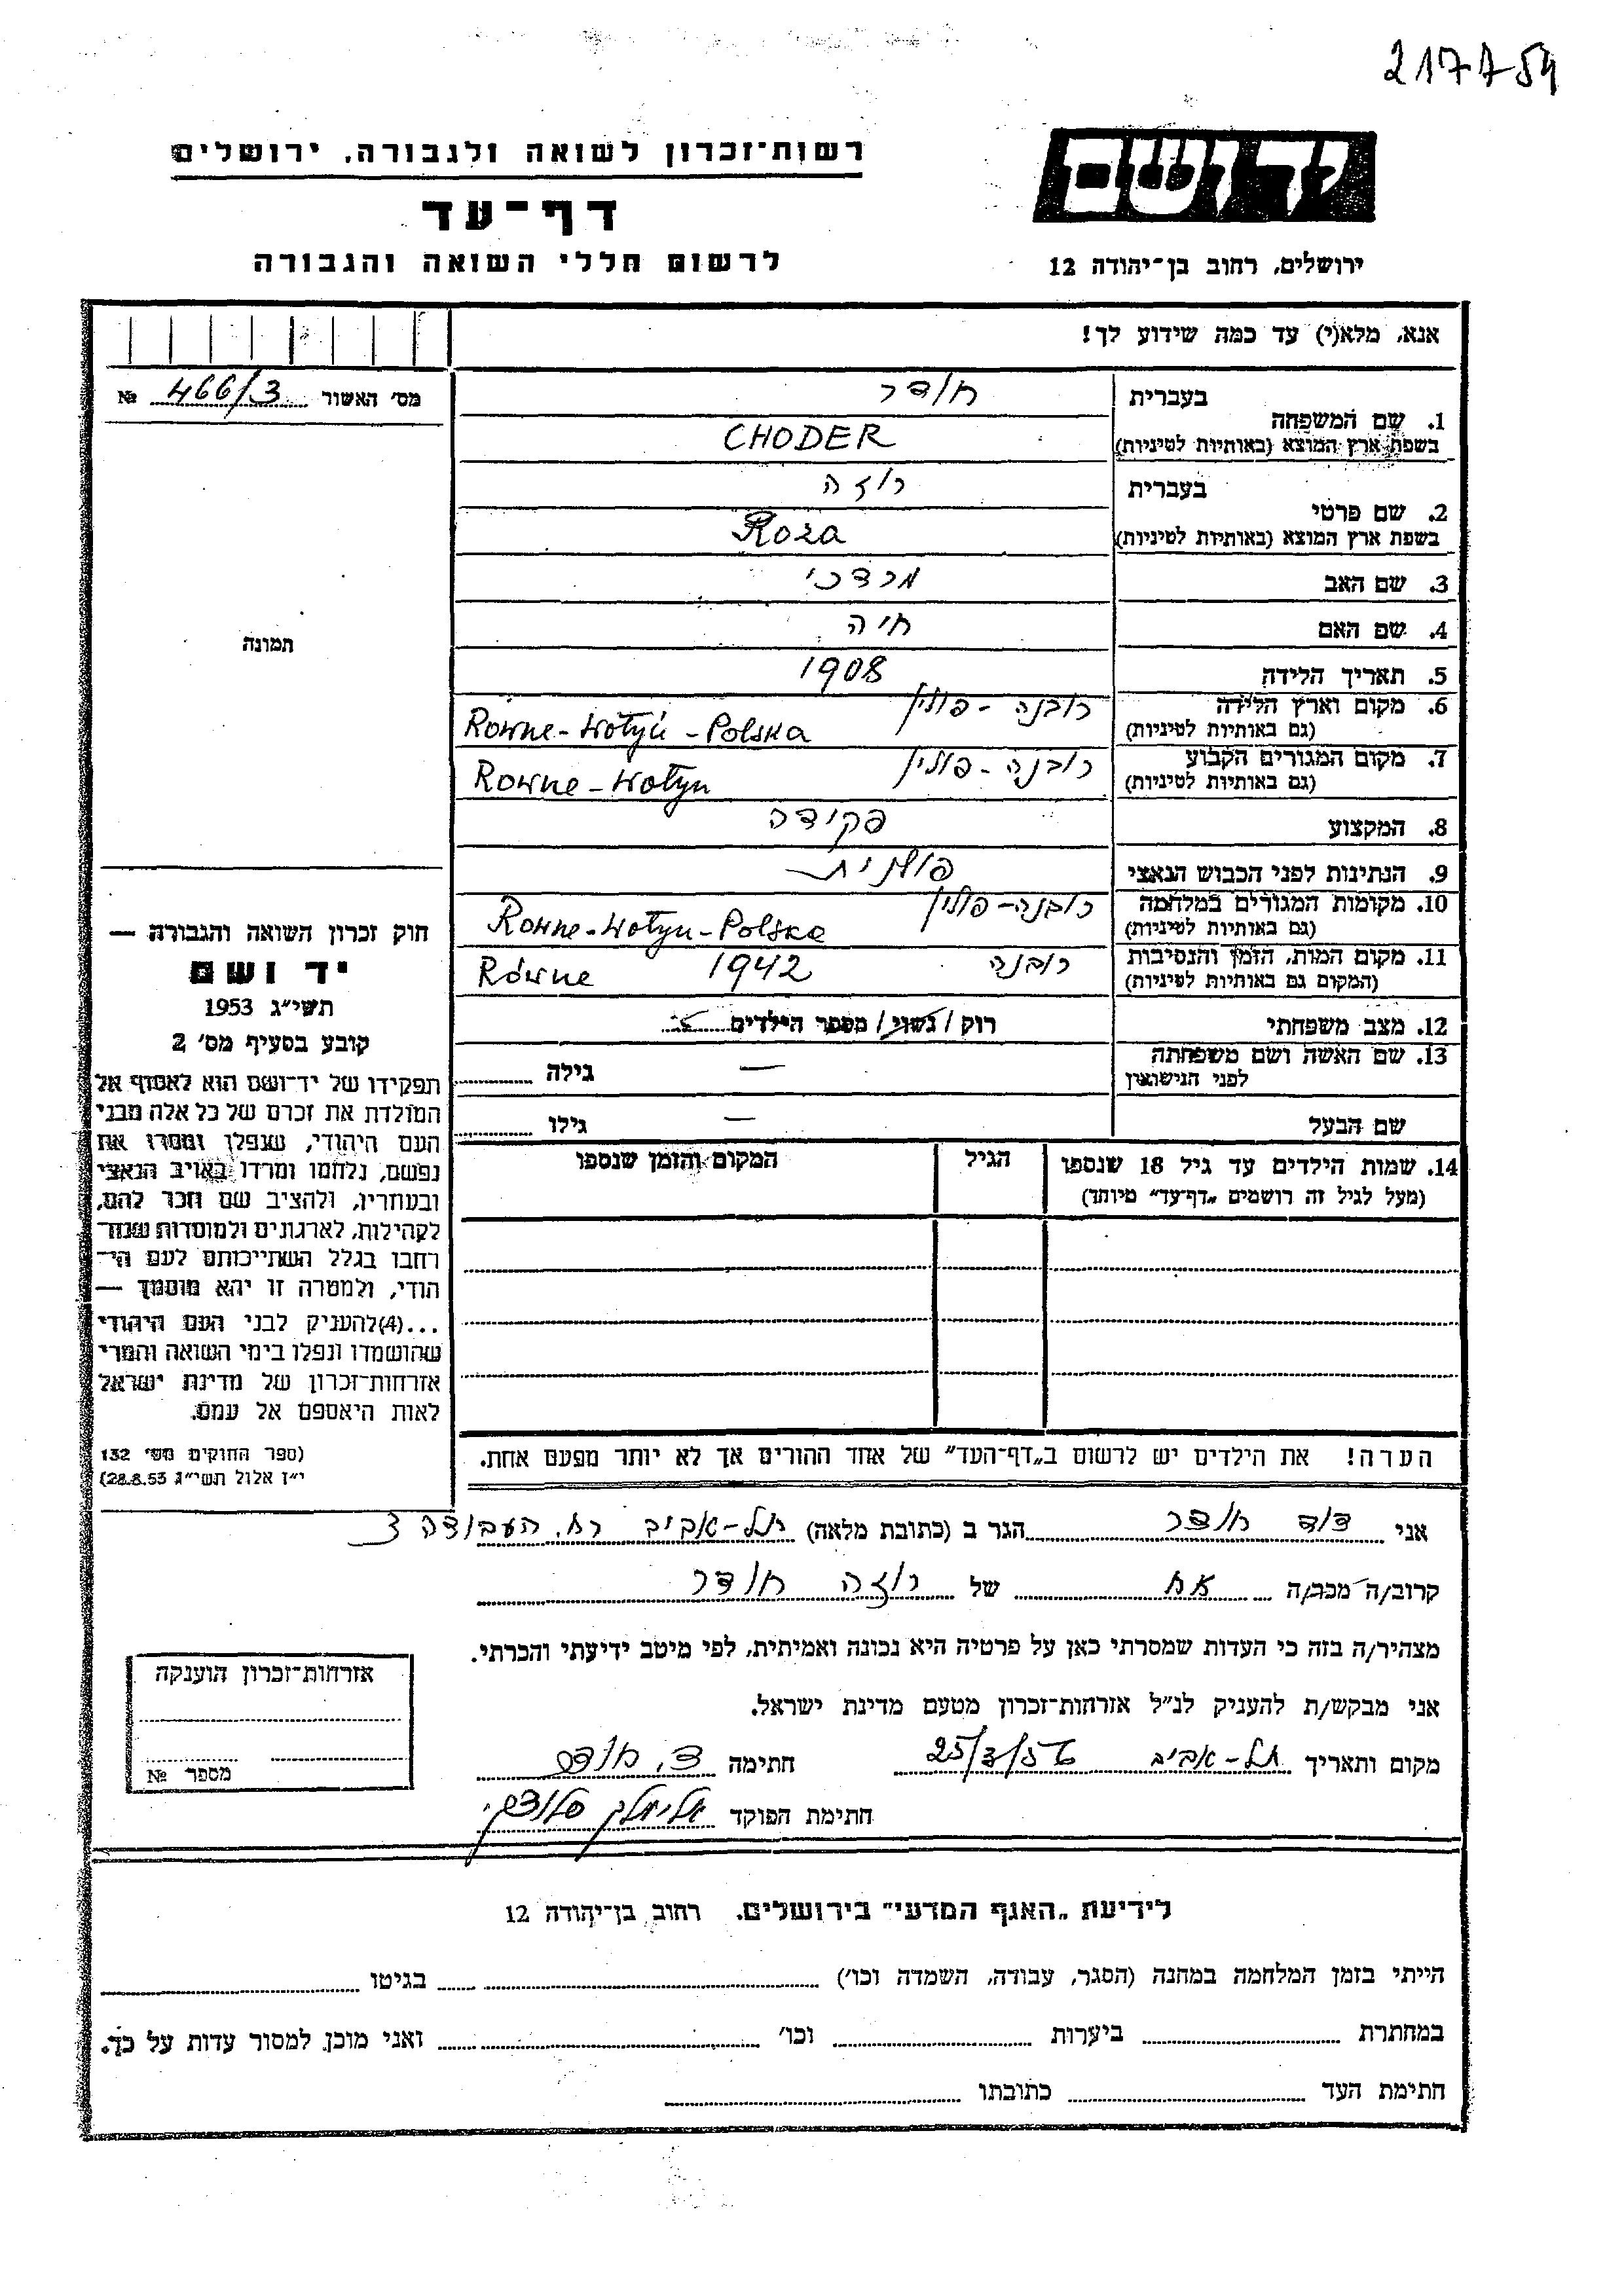 217754
רשות־זכרון לשואה ולגבורה, ירושלים
דף־עד
לרשום חללי השואה והגבורה
יד ושם
ירושלים, רחוב בן־יהודה 12
אנא, מלא(י) עד כמה שידוע לך!
מס' האשור 466/3 №
תמונה
1. שם המשפחה בעברית חודר
בשפת ארץ המוצא (באותיות לטיניות) CHODER
2. שם פרטי בעברית רוזה
בשפת ארץ המוצא (באותיות לטיניות) Roza
3. שם האב מרדכי
4. שם האם חיה
5. תאריך הלידה 1908
6. מקום וארץ הלידה רובנה - פולין
(גם באותיות לטיניות) Rowne-Wołyń-Polska
7. מקום המגורים הקבוע רובנה - פולין
(גם באותיות לטיניות) Rowne-Wołyn
8. המקצוע פקידה
9. הנתינות לפני הכבוש הנאצי פולנית
10. מקומות המגורים במלחמה רובנה - פולין
(גם באותיות לטיניות) Rowne-Wołyn-Polska
11. מקום המות, הזמן והנסיבות רובנה 1942 Równe
(המקום גם באותיות לטיניות)
12. מצב משפחתי רוק / נשוי / מספר הילדים
13. שם האשה ושם משפחתה — גילה
לפני הנישואין
שם הבעל — גילו
14. שמות הילדים עד גיל 18 שנספו הגיל המקום והזמן שנספו
(מעל לגיל זה רושמים „דף־עד" מיוחד)
הערה! את הילדים יש לרשום ב„דף־העד" של אחד ההורים אך לא יותר מפעם אחת.
חוק זכרון השואה והגבורה —
יד ושם
תשי"ג 1953
קובע בסעיף מס' 2
תפקידו של יד־ושם הוא לאסוף אל
המולדת את זכרם של כל אלה מבני
העם היהודי, שנפלו ומסרו את
נפשם, נלחמו ומרדו באויב הנאצי
ובעוזריו, ולהציב שם וזכר להם,
לקהילות, לארגונים ולמוסדות שנח־
רבו בגלל השתייכותם לעם הי־
הודי, ולמטרה זו יהא מוסמך —
...(4)להעניק לבני העם היהודי
שהושמדו ונפלו בימי השואה והמרי
אזרחות־זכרון של מדינת ישראל
לאות היאספם אל עמם.
(ספר החוקים מס' 132
י"ז אלול תשי"ג 28.8.53)
אני דוד חודר הגר ב (כתובת מלאה) תל-אביב רח. העבודה 3
קרוב/ה מכר/ה אח של רוזה חודר
מצהיר/ה בזה כי העדות שמסרתי כאן על פרטיה היא נכונה ואמיתית, לפי מיטב ידיעתי והכרתי.
אני מבקש/ת להעניק לנ"ל אזרחות־זכרון מטעם מדינת ישראל.
מקום ותאריך תל-אביב 25/3/56 חתימה ד. חודר
חתימת הפוקד
אזרחות־זכרון הוענקה
מספר №
לידיעת „האגף המדעי" בירושלים, רחוב בן־יהודה 12
הייתי בזמן המלחמה במחנה (הסגר, עבודה, השמדה וכו') בגיטו
במחתרת ביערות וכו' ואני מוכן למסור עדות על כך.
חתימת העד כתובתו